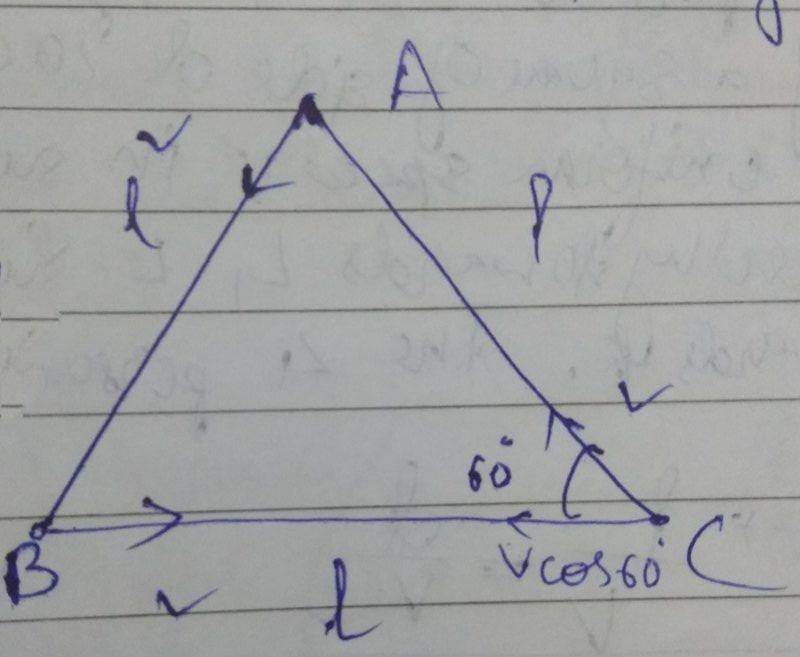 A
v
l
l
v
60°
B
v cos 60°
C
v
l